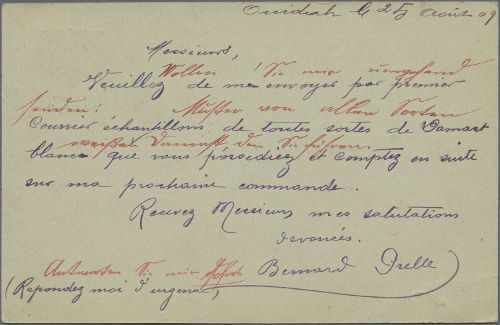 Ouidah le 25 Août 09
Messieurs,
Wollen Sie mir umgehend
Veuillez de me envoyer par premier
senden: Muster von allen Sorten
Courrier échantillons de toutes sortes de Damart
weißer Damast den Sie führen
blanc que vous possediez et comptez en suite
sur ma prochaine commande.
Recevez Messieurs mes salutations
devouées.
Antworten Sie mir sofort
Bernard
(Repondez moi d'urgence)